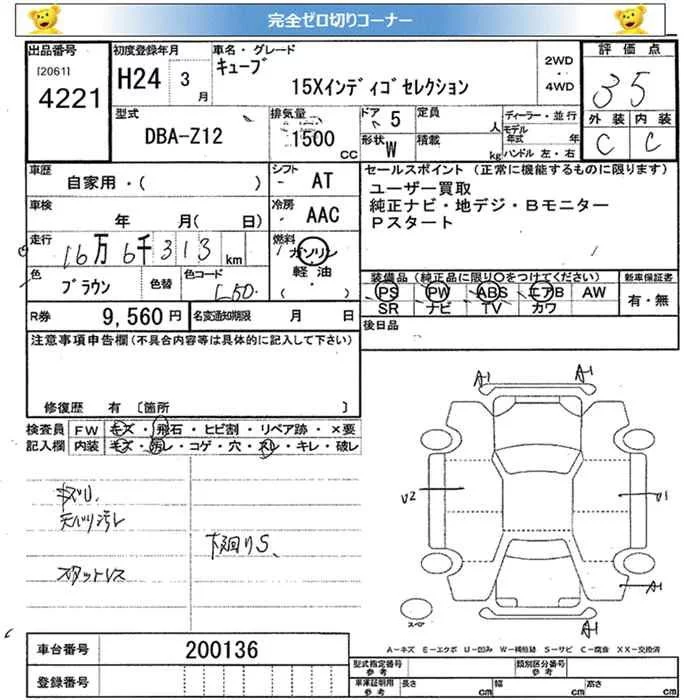 完全ゼロ切りコーナー
出品番号 初度登録年月 車名・グレード 評価点
[2061] H24 3月 キューブ 2WD
4221 15Xインディゴセレクション 4WD 35
型式 排気量 ドア 5 定員 人 ディーラー・並行 外装 内装
DBA-Z12 1500 CC 形状 W 積載 kg モデル年式 年 C C
ハンドル 左・右
車歴 シフト セールスポイント (正常に機能するものに限ります)
自家用・( ) AT ユーザー買取
車検 冷房 純正ナビ・地デジ・Bモニター
年 月( 日) AAC Pスタート
走行 16万6千313km 燃料 ガソリン
色 ブラウン 色替 色コード L50. 軽油 ・( )
装備品 (純正品に限り○をつけてください) 新車保証書
PS PW ABS エアB AW 有・無
SR ナビ TV カワ
R券 9,560円 名変通知期限 月 日 後日品
注意事項申告欄(不具合内容等は具体的に記入して下さい)
修復歴 有 [箇所 ]
検査員 FW キズ・飛石・ヒビ割・リペア跡・×要
記入欄 内装 キズ・汚レ・コゲ・穴・スレ・キレ・破レ
A-1 A-1
キズU.
天バリ汚レ
U2 U1
下廻りS、
スタットレス
A1
スペア A1
A-キズ E-エクボ U-凹み W-補修跡 S-サビ C-腐食 XX-交換済
車台番号 200136
型式指定番号 参考 類別区分番号 参考
登録番号
車庫証明用 参考 長さ cm 幅 cm 高さ cm